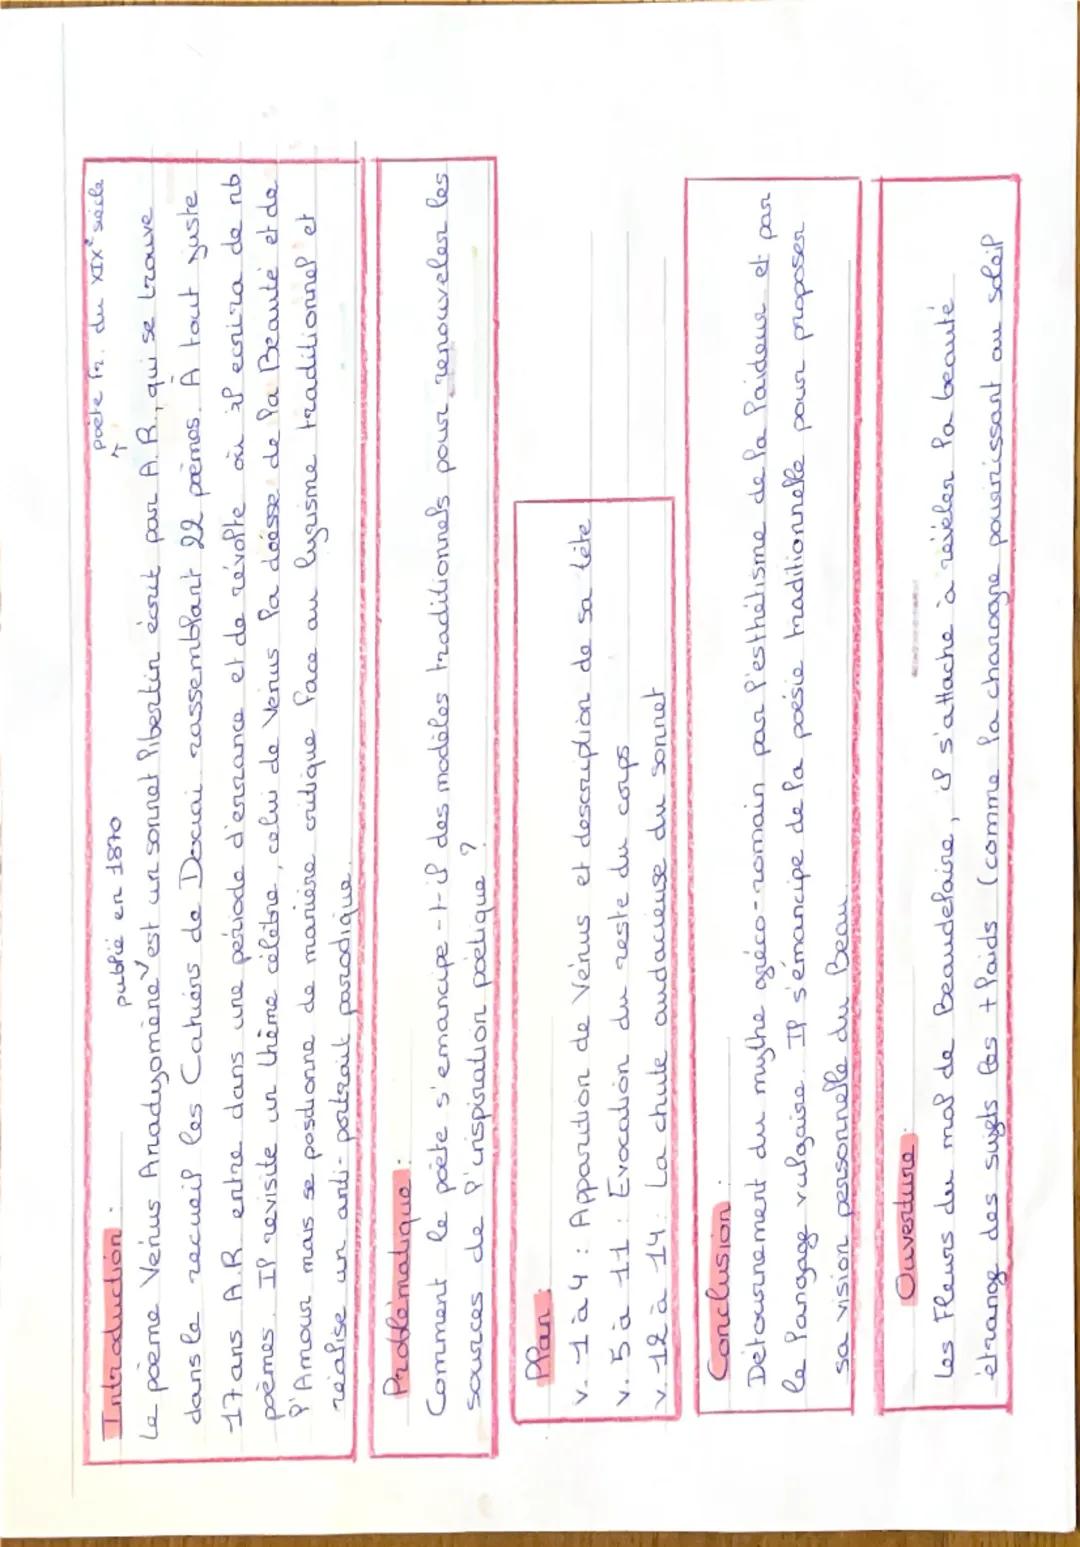 Introduction :
publié en 1870
poète fr. du XIXe siècle
Le poème Vénus Anadyomène est un sonnet libertin écrit par A.R., qui se trouve
dans le recueil les Cahiers de Douai rassemblant 22 poèmes. À tout juste
17 ans A.R. entre dans une période d'errance et de révolte où il ecrira de nb
poèmes. Il revisite un thème célèbre, celui de Vénus la déesse de la Beauté et de
l'Amour mais se positionne de manière critique face au lyrisme traditionnel et
réalise un anti-portrait parodique.
Problématique :
Comment le poète s'émancipe-t-il des modèles traditionnels pour renouveler les
sources de l'inspiration poétique ?
Plan :
v. 1 à 4 : Apparition de Vénus et description de sa tête
v. 5 à 11 : Evocation du reste du corps
v. 12 à 14 : La chute audacieuse du sonnet
Conclusion :
Détournement du mythe gréco-romain par l'esthétisme de la laideur et par
le langage vulgaire. Il s'émancipe de la poésie traditionnelle pour proposer
sa vision personnelle du Beau.
Ouverture :
Les Fleurs du mal de Beaudelaire, il s'attache à révéler la beauté
étrange des sujets les + laids (comme la charogne pourrissant au soleil